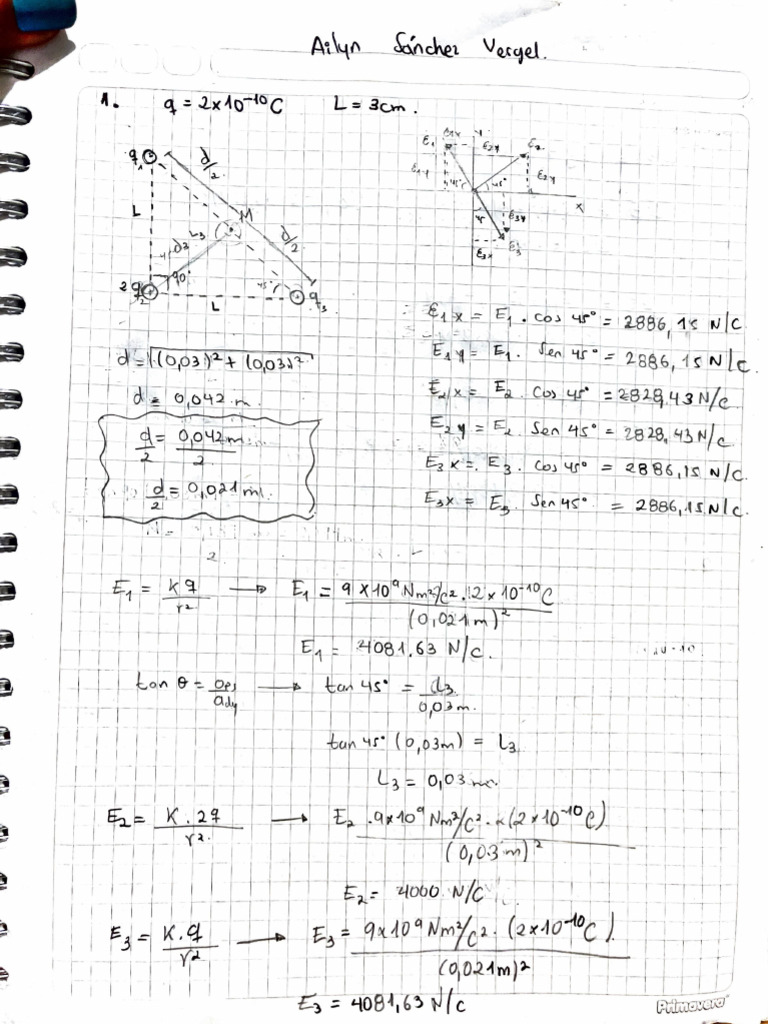 Ailyn Sánchez Vergel.
1. q = 2x10⁻¹⁰C L = 3cm.
q₁
d/2
L
M
L₃
d/2
2q₂
90°
45°
L
q₃
E₁ E₁x y E₂y E₂
E₁y 45° 45° E₂y
x
45 E₃y
E₃x E₃
E₁x = E₁ . cos 45° = 2886,15 N/C.
E₁y = E₁. Sen 45° = 2886,15 N/C.
E₂x = E₂. Cos 45° = 2828,43 N/C.
E₂y = E₂. Sen 45° = 2828,43 N/C.
E₃x = E₃. cos 45° = 2886,15 N/C.
E₃x = E₃. Sen 45° = 2886,15 N/C.
d = √(0,03)² + (0,03)²
d = 0,042 m.
d/2 = 0,042m/2
d/2 = 0,021m
2.
E₁ = Kq/r² → E₁ = 9x10⁹Nm²/C².12x10⁻¹⁰C/(0,021m)²
E₁ = 4081.63 N/C.
tan θ = op/ady → tan 45° = d₃/0,03m.
tan 45° (0,03m) = L₃
L₃ = 0,03m.
E₂ = K.2q/r². → E₂ .9x10⁹ Nm²/C². (2x10⁻¹⁰C)/(0,03m)²
E₂ = 4000 N/C
E₃ = K.q/r² → E₃ = 9x10⁹ Nm²/C². (2x10⁻¹⁰C)./(0,021m)²
E₃ = 4081,63 N/C
Primavera